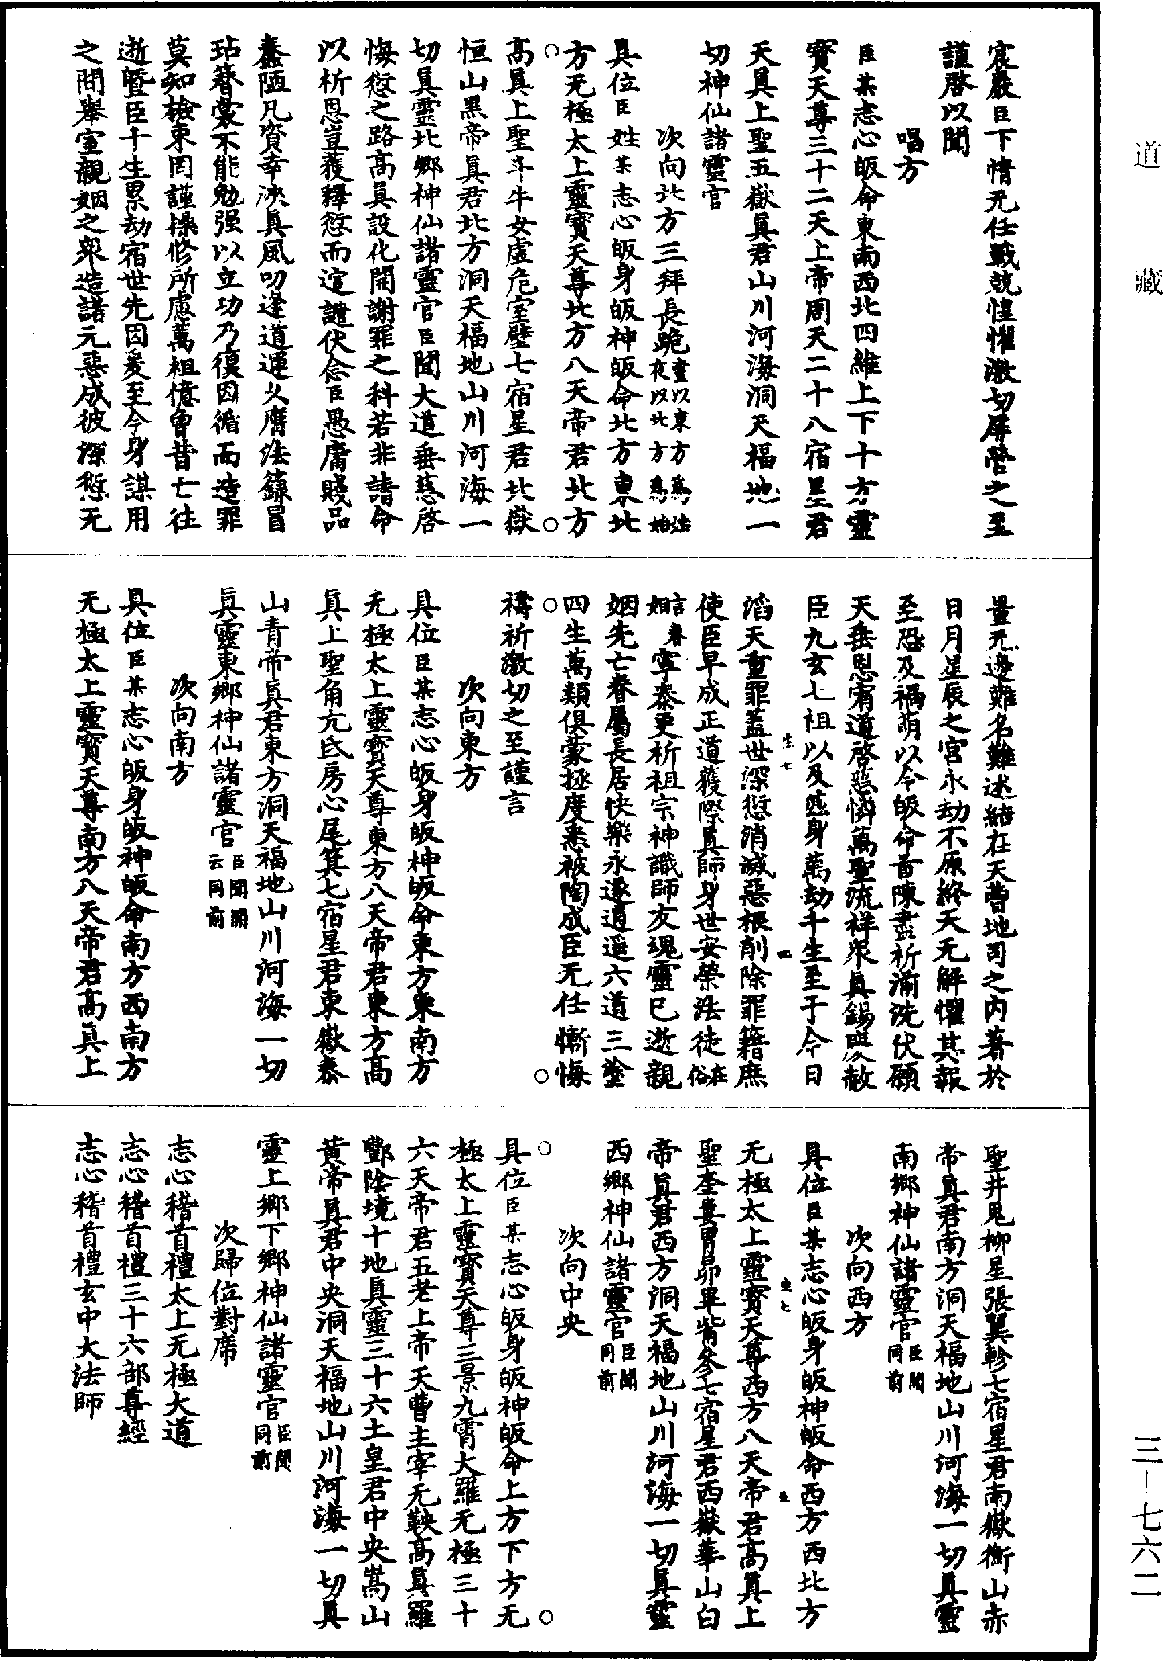 道藏
宸嚴臣下情无任戰兢惶懼激切屏營之至
謹啓以聞
唱方
臣某志心皈命東南西北四維上下十方靈
寶天尊三十二天上帝周天二十八宿星君
天真上聖五嶽真君山川河海洞天福地一
切神仙諸靈官
次向北方三拜長跪晝以東方爲始夜以北方爲始
具位臣姓某志心皈身皈神皈命北方東北
方无極太上靈寶天尊北方八天帝君北方
高真上聖斗牛女虛危室壁七宿星君北嶽
恒山黑帝真君北方洞天福地山川河海一
切真靈北鄉神仙諸靈官臣聞大道垂慈啓
悔愆之路高真設化開謝罪之科若非請命
以祈恩豈獲釋愆而逭譴伏念臣愚庸賤品
蠢陋凡資幸浹真風叨逢道運久膺法籙冒
玷簪裳不能勉强以立功乃復因循而造罪
莫知檢束罔謹操修所慮萬祖億曾昔亡往
逝曁臣千生累劫宿世先因爰至今身謀用
之間舉室親姻之衆造諸元惡成彼深愆无
量无邊難名難述結在天曹地司之內著於
日月星辰之宮永劫不原終天无解懼其報
至恐及禍萌以今皈命首陳盡祈湔洗伏願
天垂恩宥道啓慈憐萬聖流祥衆真錫貺赦
臣九玄七祖以及茲身萬劫千生至于今日
滔天重罪蓋世深愆消滅惡根削除罪籍庶
使臣早成正道獲際真師身世安榮法徒在俗
言眷姻寧泰更祈祖宗神識師友魂靈已逝親
姻先亡眷屬長居快樂永遂逍遥六道三塗
四生萬類俱蒙拯度悉被陶成臣无任慚悔
禱祈激切之至謹言
次向東方
具位臣某志心皈身皈神皈命東方東南方
无極太上靈寶天尊東方八天帝君東方高
真上聖角亢氐房心尾箕七宿星君東嶽泰
山青帝真君東方洞天福地山川河海一切
真靈東鄉神仙諸靈官臣聞云同前
次向南方
具位臣某志心皈身皈神皈命南方西南方
无極太上靈寶天尊南方八天帝君高真上
聖井鬼柳星張翼軫七宿星君南嶽衡山赤
帝真君南方洞天福地山川河海一切真靈
南鄉神仙諸靈官臣聞同前
次向西方
具位臣某志心皈身皈神皈命西方西北方
无極太上靈寶天尊西方八天帝君高真上
聖奎婁胃昴畢觜參七宿星君西嶽華山白
帝真君西方洞天福地山川河海一切真靈
西鄉神仙諸靈官臣聞同前
次向中央
具位臣某志心皈身皈神皈命上方下方无
極太上靈寶天尊三景九霄大羅无極三十
六天帝君五老上帝天曹主宰无鞅高真羅
酆陰境十地真靈三十六土皇君中央嵩山
黄帝真君中央洞天福地山川河海一切真
靈上鄉下鄉神仙諸靈官臣聞同前
次歸位對席
志心稽首禮太上无極大道
志心稽首禮三十六部尊經
志心稽首禮玄中大法師
三－七六二